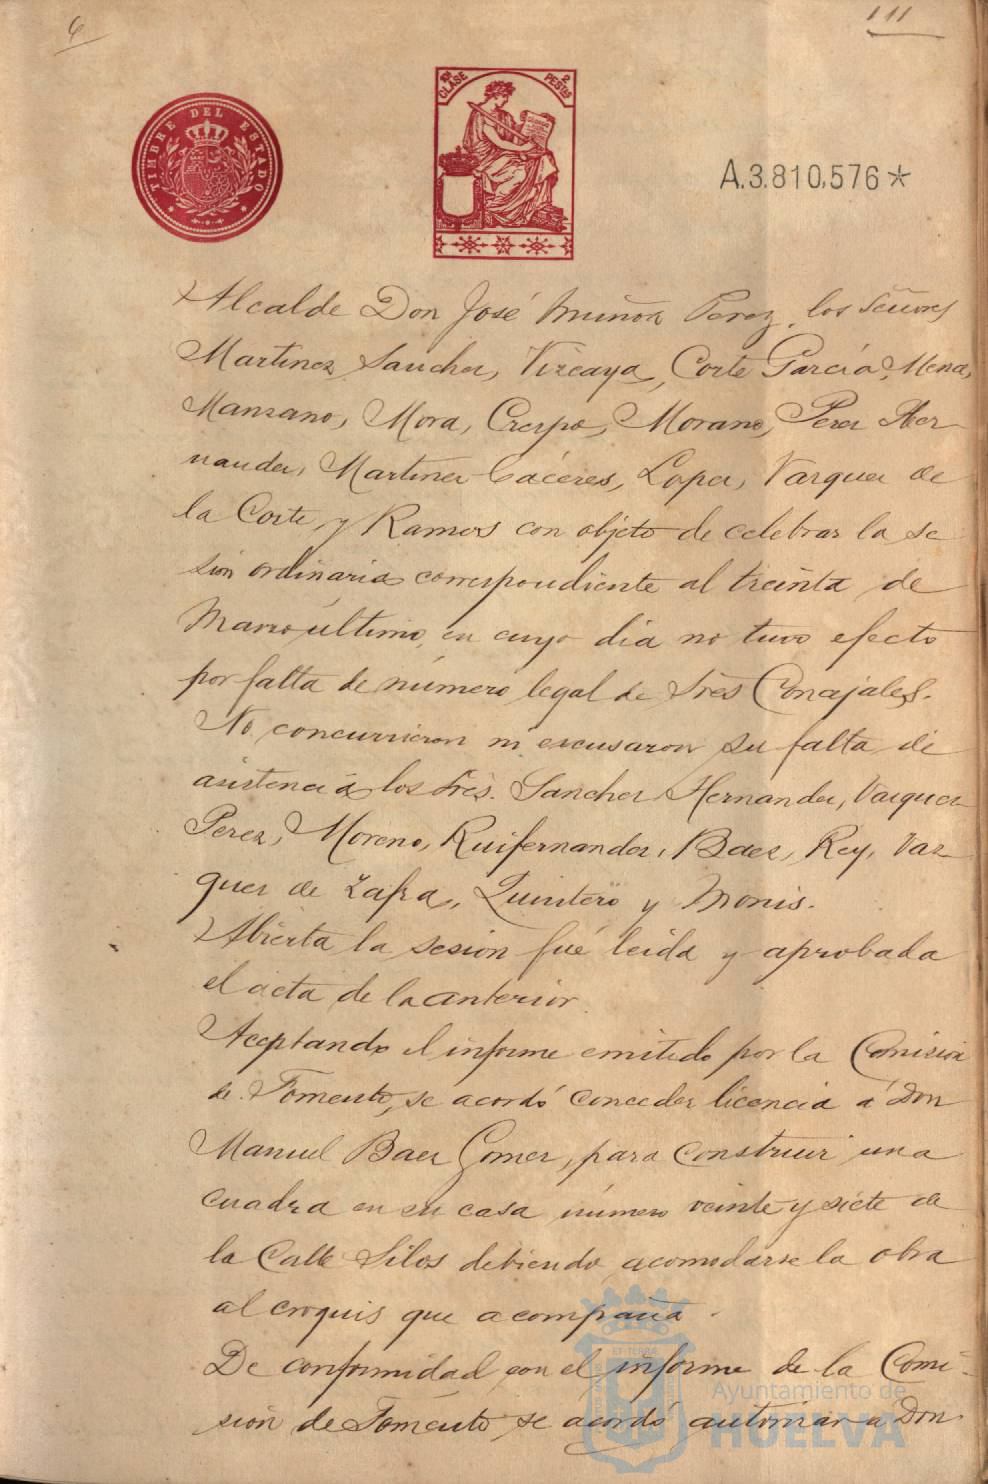 6
111
TIMBRE DEL ESTADO
EN CLASE 2 PESTAS
A.3.810,576*
Alcalde Don José Muñoz Perez, los Señores
Martinez Sanchez, Vizcaya, Corte Garcia, Mena,
Manzano, Mora, Crespo, Morano, Perez Her
nandez, Martinez Cáceres, Lopez, Vazquez de
la Corte y Ramos con objeto de celebrar la se
sion ordinaria correspondiente al treinta de
Marzo último, en cuyo dia no tuvo efecto
por falta de número legal de Sres Concejales.
No concurrieron ni escusaron su falta de
asistencia los Sres. Sanchez Hernandez, Vazquez
Perez, Moreno, Ruifernandez, Baez, Rey, Vaz
quez de Zafra, Quintero y Monis.
Abierta la sesion fué leida y aprobada
el acta de la anterior.
Aceptando el informe emitido por la Comision
de Fomento, se acordó conceder licencia á Don
Manuel Baez Gomez, para construir una
cuadra en su casa número veinte y siete de
la Calle Silos debiendo acomodarse la obra
al croquis que acompaña.
De conformidad con el informe de la Comi-
sión de Fomento se acordó autorizar a Don
Ayuntamiento de
HUELVA